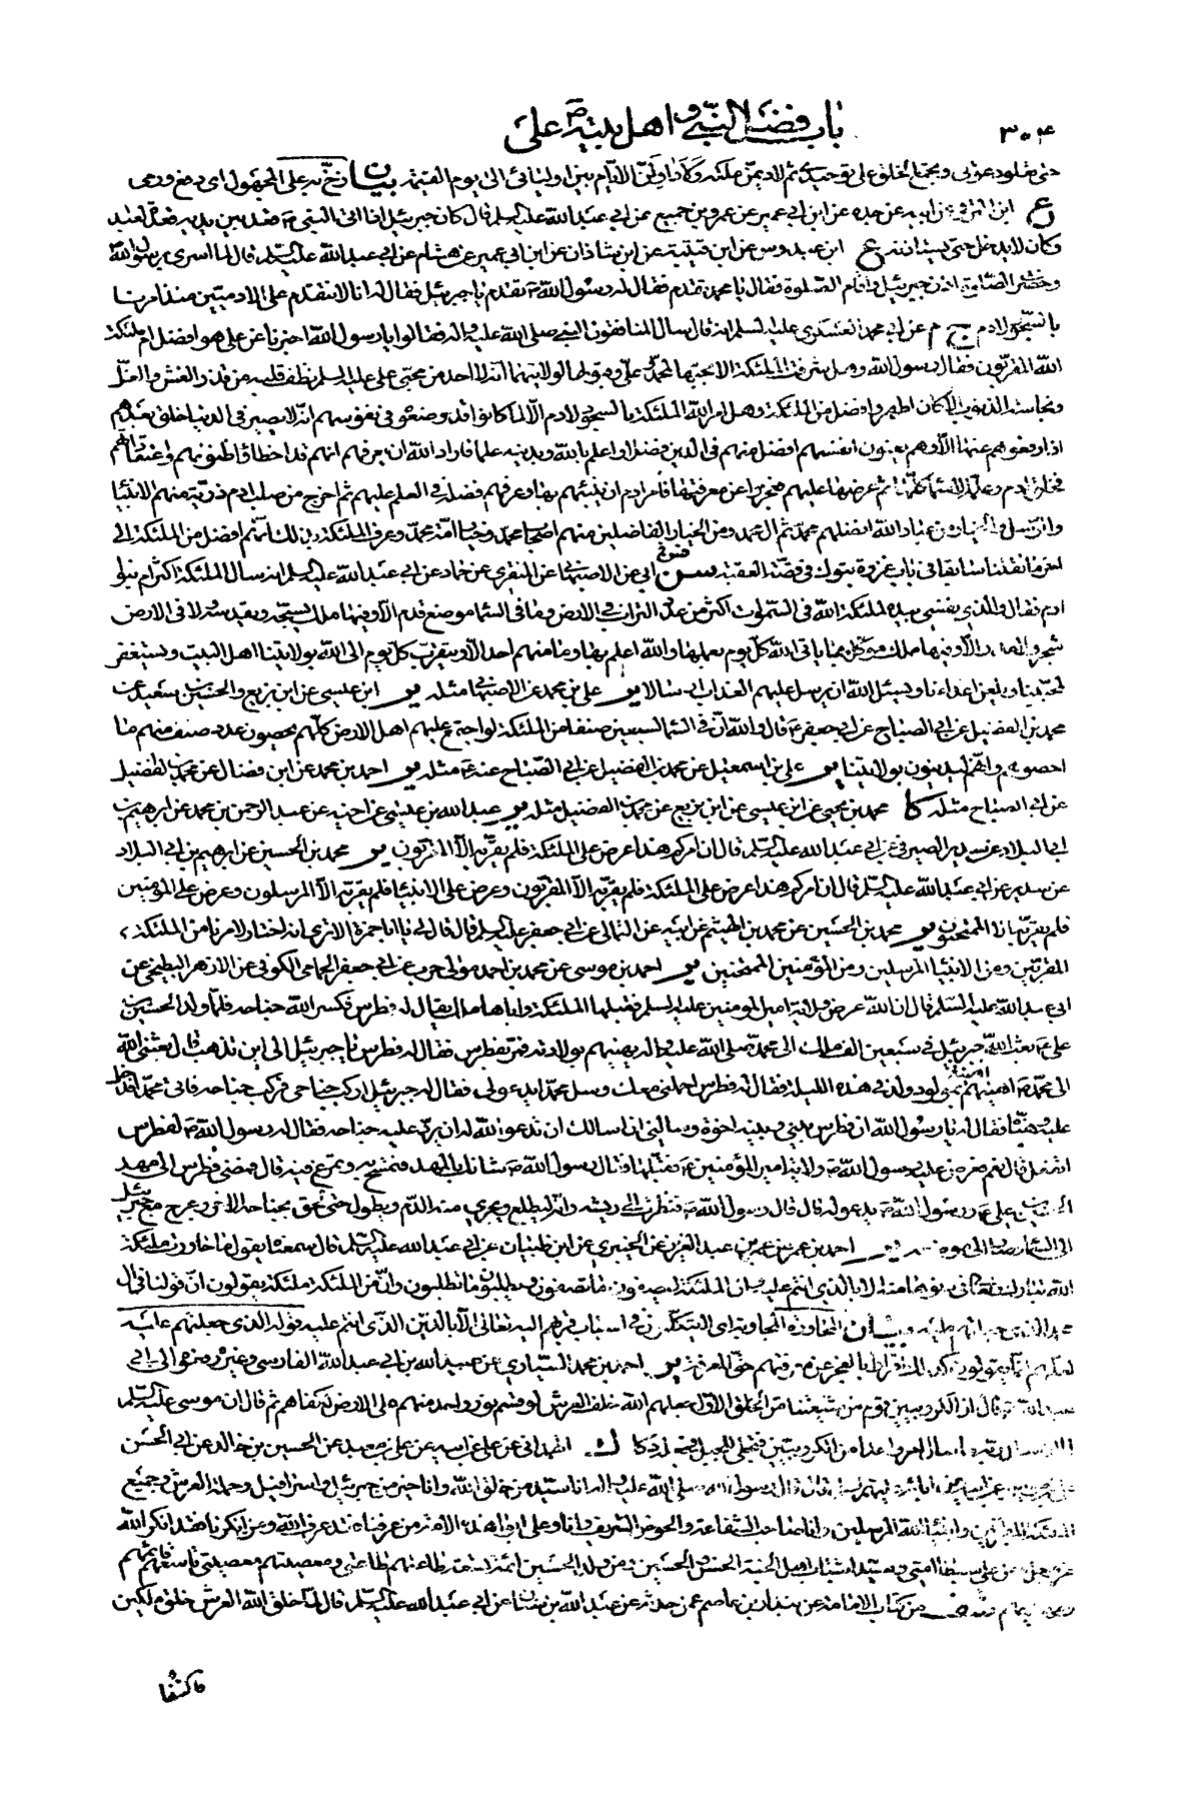 ٣٠٤
باب فضل النبي و اهل بيته ص على
حتى تعلو دعوتي ويجتمع الخلق على توحيدي ثم لاديمن ملكه ولاداولن الايام بين اوليائي الى يوم القيمة بيان زخ به على المجهول اى دفع ورمى
ع ابن المتوكل عن ابيه عن جده عن ابن ابي عمير عن عمرو بن جميع عن ابي عبد الله عليه السلم قال كان جبرئيل اذا اتى النبي ص قعد بين يديه قعدة العبد
وكان لا يدخل حتى يستاذنه ع ابن عبدوس عن ابن قتيبة عن ابن شاذان عن ابن ابي عمير عن هشام عن ابي عبد الله عليه السلم قال لما اسرى برسول الله
وحضرت الصلوة اذن جبرئيل واقام الصلوة فقال يا محمد تقدم فقال له رسول الله ص تقدم يا جبرئيل فقال له انا لا نتقدم على الادميين منذ امرنا
بالسجود لادم ج م عن ابي محمد العسكرى عليه السلم انه قال سال المنافقون النبي صلى الله عليه واله فقالوا يا رسول الله اخبرنا عن على هو افضل ام ملئكة
الله المقربون فقال رسول الله وهل شرفت الملئكة الا بحبها لمحمد وعلى وقبولها لولايتهما انه لا احد من محبى على عليه السلم نظف قلبه من قذر الغش والغل
ونجاسة الذنوب الا كان اطهر وافضل من الملئكة وهل امر الله الملئكة بالسجود لادم الا لما كانوا قد وضعوه في نفوسهم انه لا يصير في الدنيا خلق بعدهم
اذا رفعوهم عنها الا وهم يعنون انفسهم افضل منهم في الدين فضلا واعلم بالله وبدينه علما فاراد الله ان يعرفهم انهم قد اخطاوا في ظنونهم واعتقاداتهم
فخلق ادم وعلمه الاسماء كلها ثم عرضها عليهم فعجزوا عن معرفتها فامر ادم ان ينبئهم بها وعرفهم فضله في العلم عليهم ثم اخرج من صلب ادم ذرية منهم الانبياء
والرسل والخيار من عباد الله افضلهم محمد ثم ال محمد ومن الخيار الفاضلين منهم اصحاب محمد وخيار امة محمد وعرف الملئكة بذلك انهم افضل من الملئكة الى
اخر ما نقلنا سابقا في باب غزوة تبوك في قصة العقبة فس ابي عن الاصبهاني عن المنقري عن حماد عن ابي عبد الله عليه السلم انه سال الملئكة اكثر ام بنو
ادم فقال والذي نفسي بيده لملئكة الله في السموات اكثر من عدد التراب في الارض وما في السماء موضع قدم الا وفيها ملك يسبحه ويقدسه ولا في الارض
شجر ولا مدر الا وفيها ملك موكل بها ياتي الله كل يوم بعملها والله اعلم بها وما منهم احد الا ويتقرب كل يوم الى الله بولايتنا اهل البيت ويستغفر
لمحبينا ويلعن اعداءنا ويسئل الله ان يرسل عليهم العذاب ارسالا ير على بن محمد عن الاصبهاني مثله ير ابن عيسى عن ابن بزيع والحسين بن سعيد عن
محمد بن الفضيل عن ابي الصباح عن ابي جعفر ع قال والله ان في السماء لسبعين صنفا من الملئكة لو اجتمع عليهم اهل الارض كلهم يحصون عدد صنف منهم ما
احصوهم وانهم ليدينون بولايتنا ير على بن اسمعيل عن محمد بن الفضيل عن ابي الصباح عنه ع مثله ير احمد بن محمد عن ابن فضال عن محمد بن الفضيل
عن ابي الصباح مثله كا محمد بن يحيى عن ابن عيسى عن ابن بزيع عن محمد بن الفضيل مثله ير عبد الله بن عيسى عن اخيه عن عبد الرحمن بن محمد عن ابرهيم بن
ابي البلاد عن سدير الصيرفي عن ابي عبد الله عليه السلم قال ان امركم هذا عرض على الملئكة فلم يقر به الا المقربون ير محمد بن الحسين عن ابرهيم بن ابي البلاد
عن سدير عن ابي عبد الله عليه السلم قال ان امركم هذا عرض على الملئكة فلم يقر به الا المقربون وعرض على الانبياء فلم يقر به الا المرسلون وعرض على المؤمنين
فلم يقر به الا الممتحنون ير محمد بن الحسين عن محمد بن الهيثم عن ابيه عن الثمالي عن ابي جعفر عليه السلم قال قال لي يا ابا حمزة الا ترى انه اختار لامرنا من الملئكة
المقربين ومن الانبياء المرسلين ومن المؤمنين الممتحنين ير احمد بن موسى عن محمد بن احمد مولى حرب عن ابي جعفر الحمامي الكوفي عن الازهر البطيخي عن
ابي عبد الله عليه السلم قال ان الله عرض ولاية امير المؤمنين عليه السلم فقبلها الملئكة واباها ملك يقال له فطرس فكسر الله جناحه فلما ولد الحسين بن
على ع بعث الله جبرئيل في سبعين الف ملك الى محمد صلى الله عليه واله يهنئهم بولادته فمر بفطرس فقال له فطرس يا جبرئيل الى اين تذهب قال بعثني الله
الى محمد ص اهنئهم بمولود ولد في هذه الليلة فقال له فطرس احملني معك وسل محمدا يدعو لي فقال له جبرئيل اركب جناحي فركب جناحه فاتى محمدا فدخل
عليه وهناه فقال له يا رسول الله ان فطرس بيني وبينه اخوة وسالني ان اسالك ان تدعو الله له ان يرد عليه جناحه فقال له رسول الله ص لفطرس
اتفعل قال نعم فعرض عليه رسول الله ص ولاية امير المؤمنين ع فقبلها فقال رسول الله ص شانك بالمهد فتمسح به وتمرغ فيه قال فمضى فطرس الى مهد
الحسين بن على ع ورسول الله ص يدعو له قال قال رسول الله ص فنظرت الى ريشه وانه ليطلع ويجري منه الدم ويطول حتى لحق بجناحه الاخر وعرج مع جبرئيل
الى السماء وصار الى موضعه ير احمد بن عمر بن عبد العزيز عن الخيبري عن ابن ظبيان عن ابي عبد الله عليه السلم قال سمعته يقول ما جاورت ملئكة
الله تبارك وتعالى في دنوها منه الا بالذي انتم عليه وان الملئكة ليصفون ما تصفون ويطلبون ما تطلبون وان من الملئكة ملئكة يقولون ان قولنا في ال
محمد الذي جعلتهم عليه بيان
سعيد الله بن ابي عبد الله الفارسي وغيره رفعوه الى ابي
عبد الله ع قال ان الكروبيين قوم من شيعتنا من الخلق الاول جعلهم الله خلف العرش لو قسم نور واحد منهم على الارض لكفاهم ثم قال ان موسى عليه السلم
من الكروبيين فتجلى للجبل فجعله دكا ك الهمداني عن على عن ابيه عن على بن معبد عن الحسين بن خالد عن ابي الحسن
صلى الله عليه واله انا سيد من خلق الله وانا خير من جبرئيل واسرافيل وحملة العرش وجميع
الملئكة المقربين وانبياء الله المرسلين وانا صاحب الشفاعة والحوض الشريف وانا وعلى ابوا هذه الامة من عرفنا فقد عرف الله ومن انكرنا فقد انكر الله
عز وجل ومن على سبطا امتي وسيدا شباب اهل الجنة الحسن والحسين ومن ولد الحسين ائمة تسعة طاعتهم طاعتي ومعصيتهم معصيتي تاسعهم قائمهم
من كتاب الامامة عن بندار بن عاصم عمن حدثه عن عبد الله بن سنان عن ابي عبد الله عليه السلم قال لما خلق الله العرش خلق ملكين
فاكتنفا